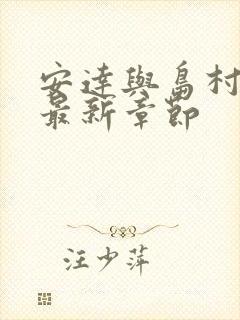 安達與島村
最新章節
汪少萍